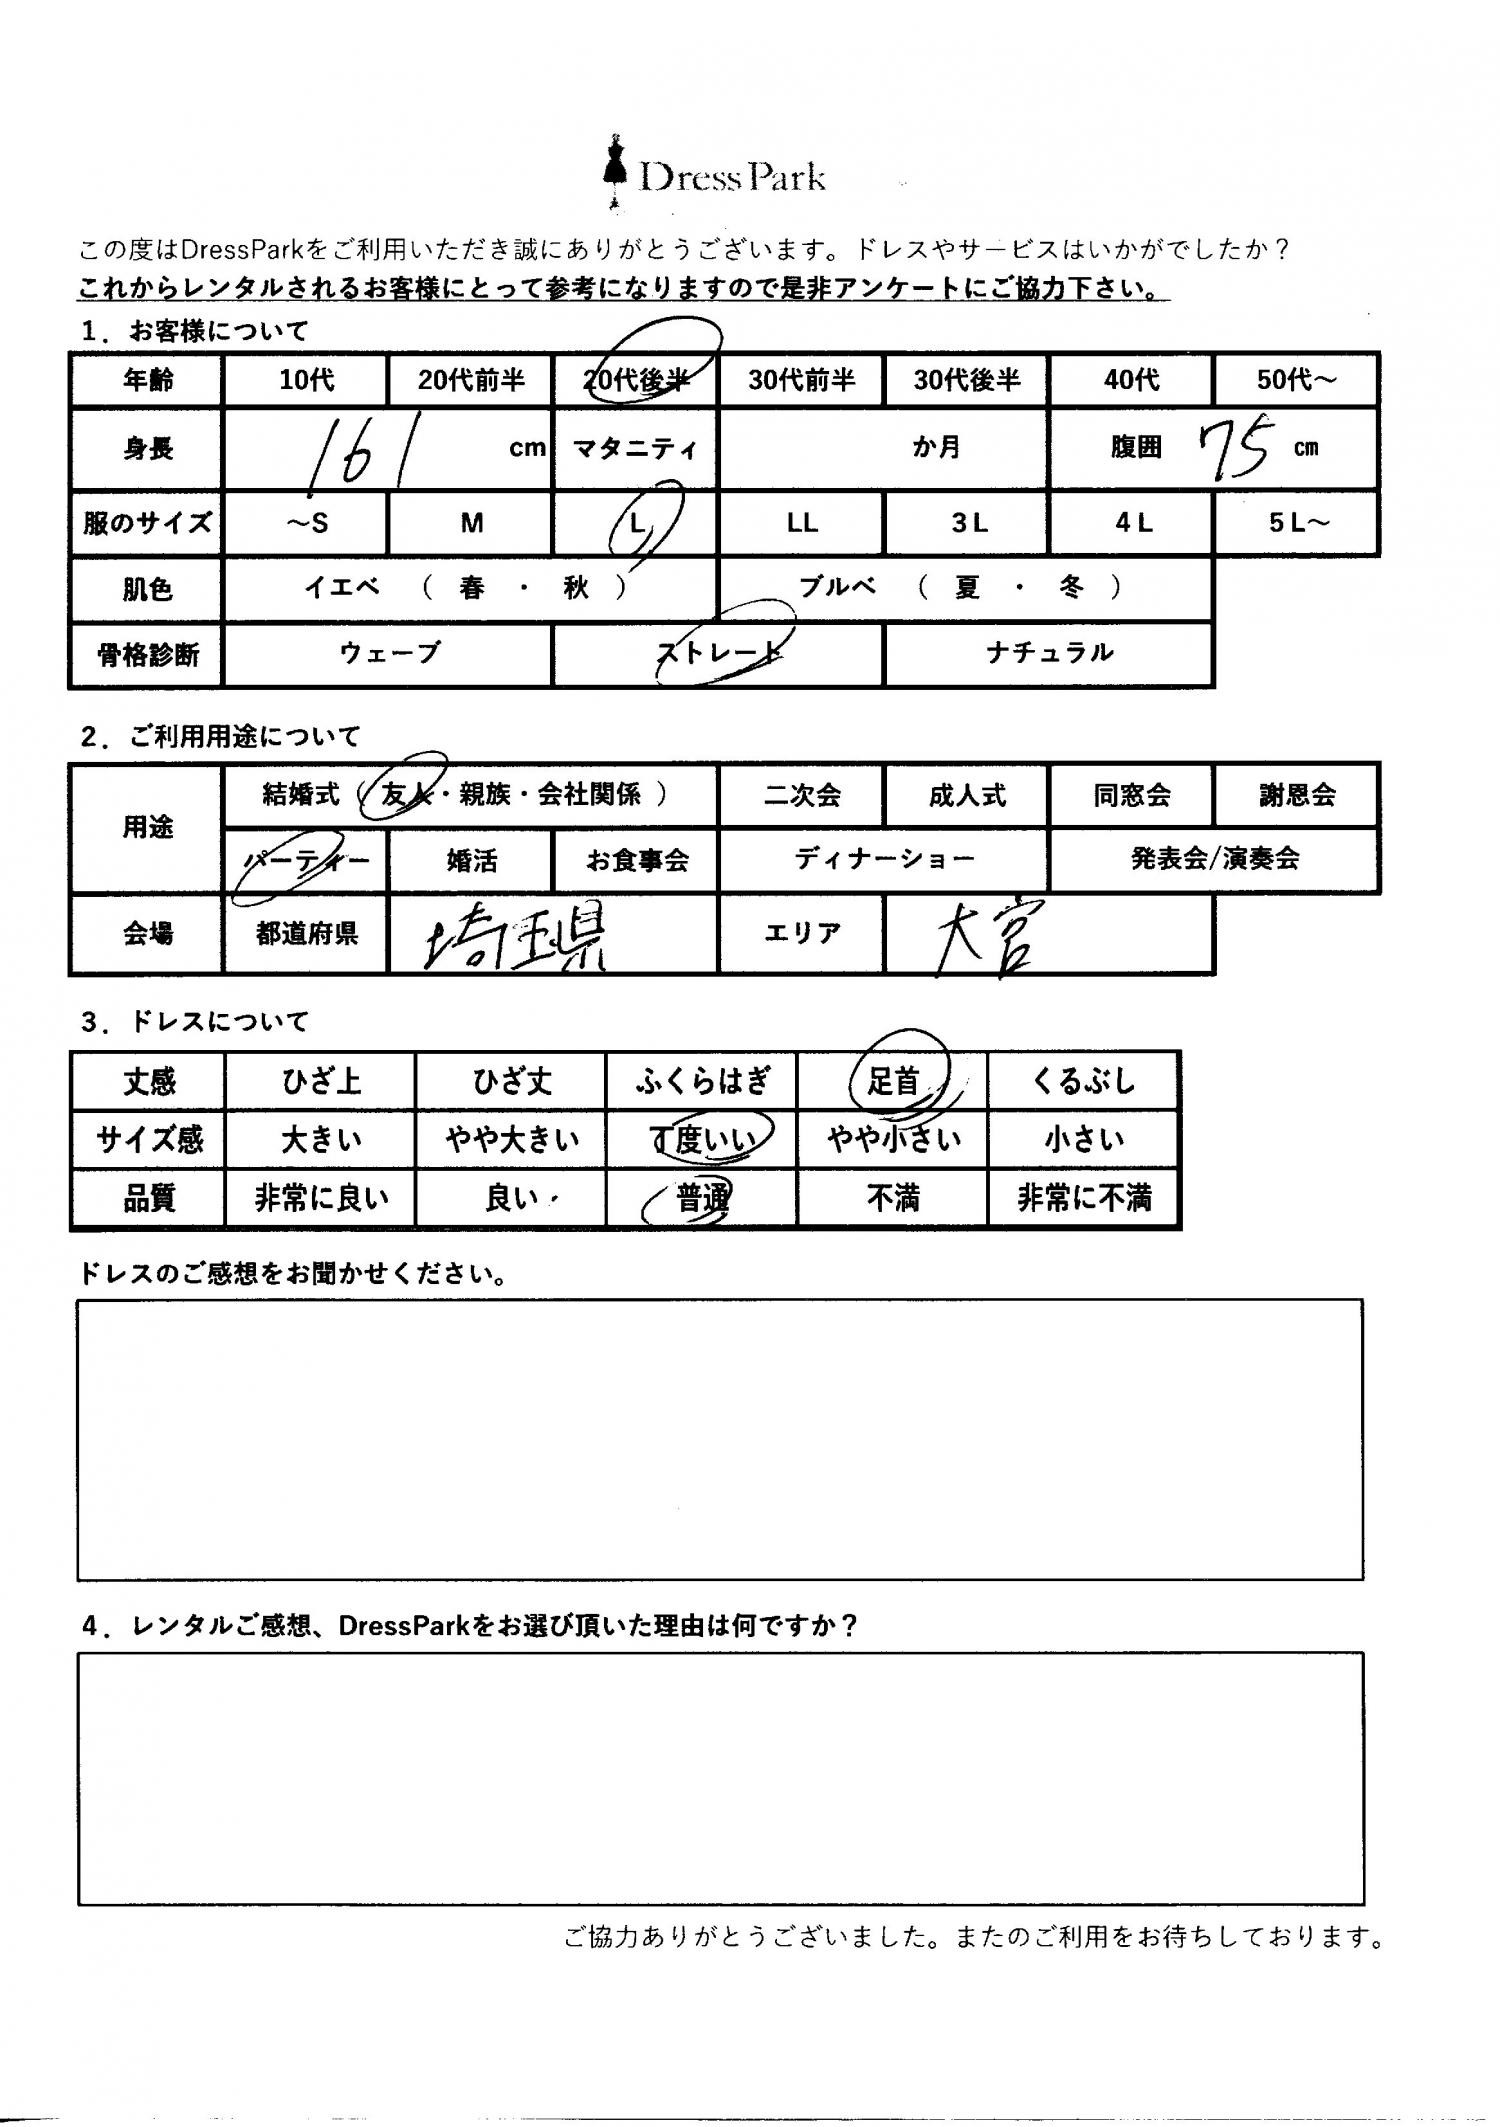 Dress Park
この度はDressParkをご利用いただき誠にありがとうございます。ドレスやサービスはいかがでしたか？
これからレンタルされるお客様にとって参考になりますので是非アンケートにご協力下さい。
1．お客様について
年齢 10代 20代前半 20代後半 30代前半 30代後半 40代 50代～
身長 161 cm マタニティ か月 腹囲 75 cm
服のサイズ ～S M L LL 3L 4L 5L～
肌色 イエベ （ 春 ・ 秋 ） ブルベ （ 夏 ・ 冬 ）
骨格診断 ウェーブ ストレート ナチュラル
2．ご利用用途について
用途 結婚式（ 友人・親族・会社関係 ） 二次会 成人式 同窓会 謝恩会
パーティー 婚活 お食事会 ディナーショー 発表会/演奏会
会場 都道府県 埼玉県 エリア 大宮
3．ドレスについて
丈感 ひざ上 ひざ丈 ふくらはぎ 足首 くるぶし
サイズ感 大きい やや大きい 丁度いい やや小さい 小さい
品質 非常に良い 良い 普通 不満 非常に不満
ドレスのご感想をお聞かせください。
4．レンタルご感想、DressParkをお選び頂いた理由は何ですか？
ご協力ありがとうございました。またのご利用をお待ちしております。